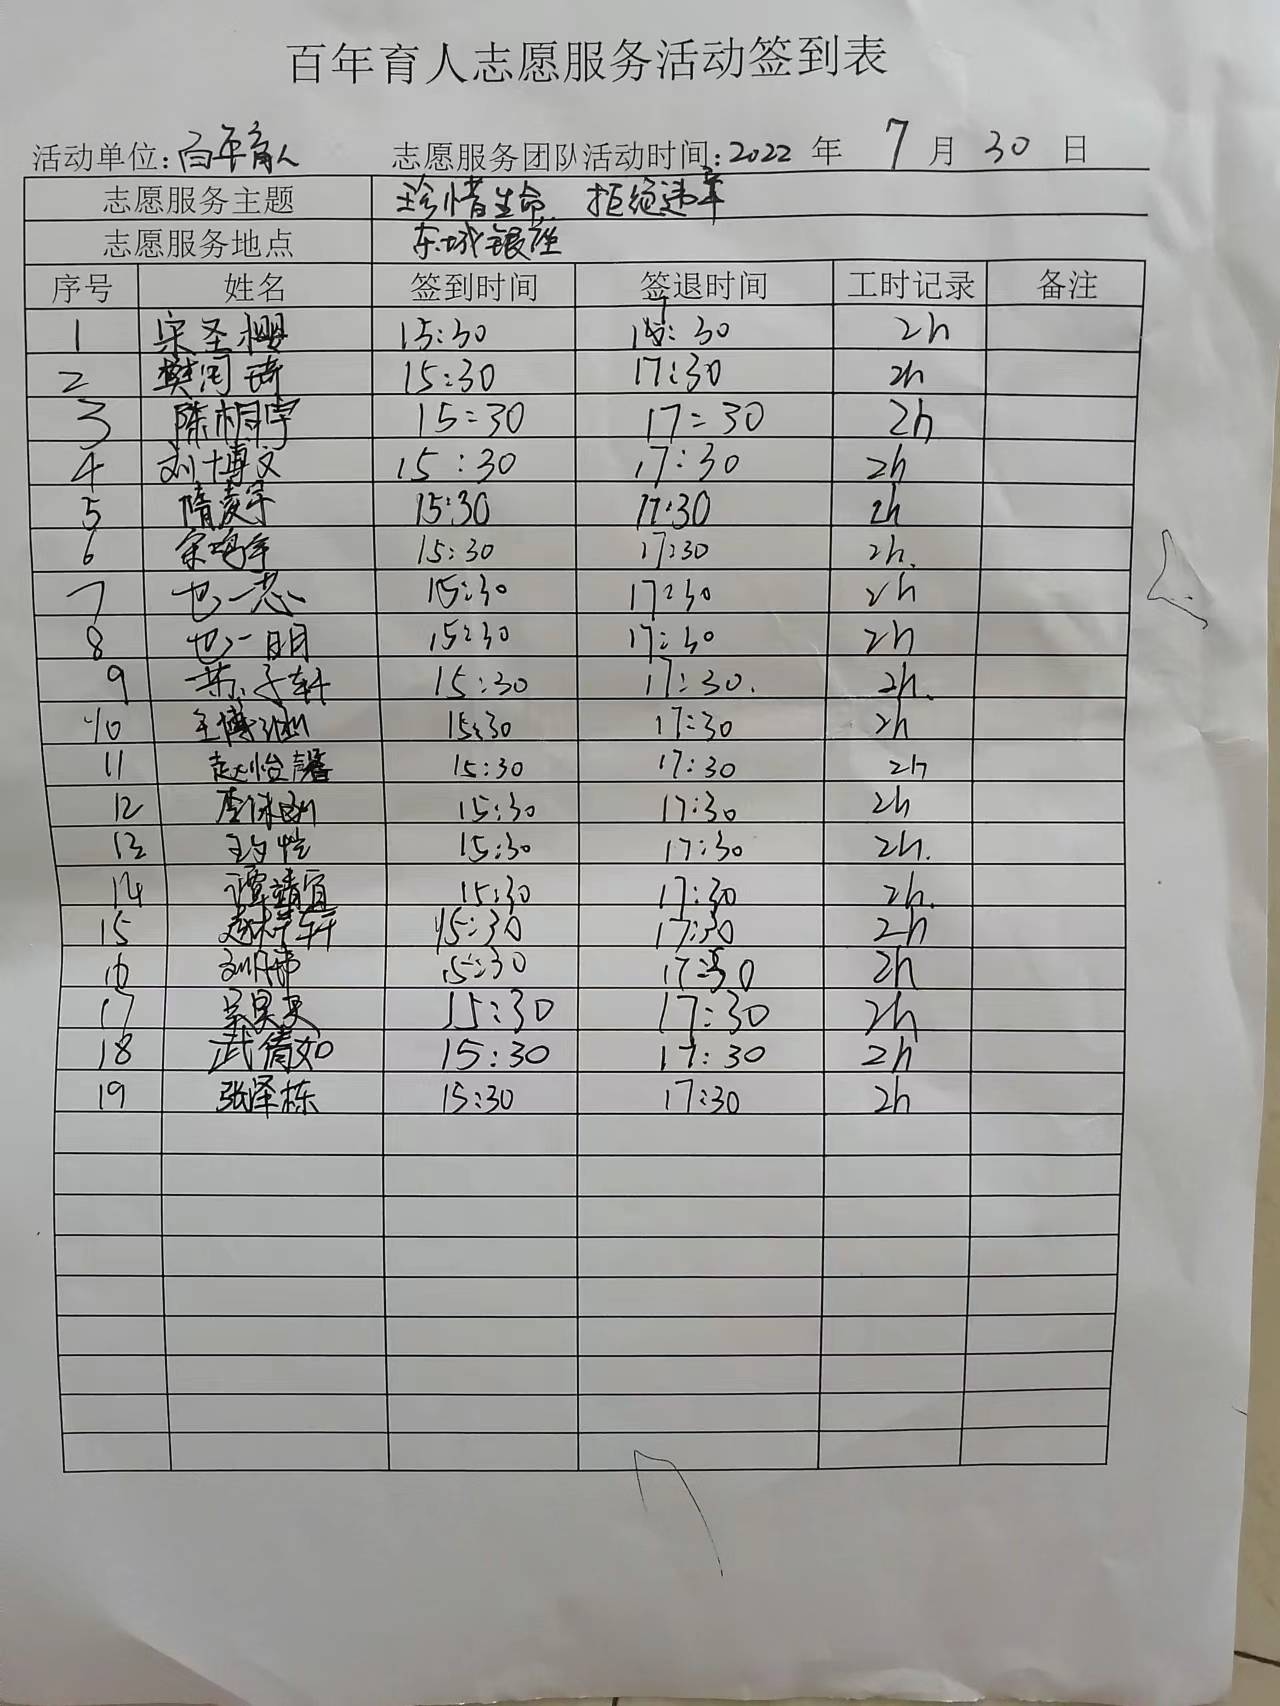 百年育人志愿服务活动签到表
活动单位:百年育人 志愿服务团队活动时间:2022 年 7 月 30 日
志愿服务主题 珍惜生命 拒绝违章
志愿服务地点 东城银座
序号 姓名 签到时间 签退时间 工时记录 备注
1 宋圣樱 15:30 17:30 2h
2 樊闰琦 15:30 17:30 2h
3 陈相宇 15:30 17:30 2h
4 刘博文 15:30 17:30 2h
5 隋凌宇 15:30 17:30 2h
6 宋鸣宇 15:30 17:30 2h.
7 一志 15:30 17:30 2h
8 一明 15:30 17:30 2h
9 子轩 15:30 17:30. 2h.
10 王博涵 15:30 17:30 2h
11 赵怡馨 15:30 17:30 2h
12 15:30 17:30 2h
13 15:30 17:30 2h.
14 谭靖宜 15:30 17:30 2h.
15 轩 15:30 17:30 2h
16 刘 15:30 17:30 2h
17 昊 15:30 17:30 2h
18 武倩如 15:30 17:30 2h
19 张泽栋 15:30 17:30 2h